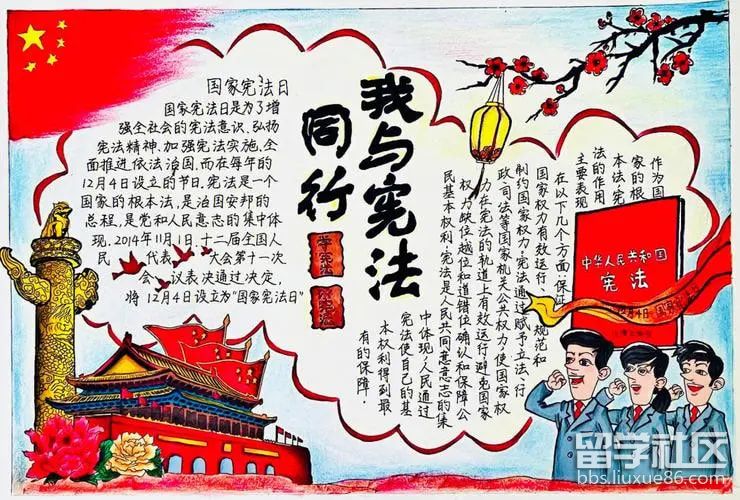 我与宪法
同行
学宪法
国家宪法日
国家宪法日是为了增
强全社会的宪法意识、弘扬
宪法精神、加强宪法实施、全
面推进依法治国、而在每年的
12月4日设立的节日,宪法是一个
国家的根本法,是治国安邦的
总程,是党和人民意志的集中体
现,2014年11月1日,十二届全国人
民 代表 大会第十一次
会 议表决通过决定,
将12月4日设立为"国家宪法日"
作为国
家的根
本法,宪
法的作用
主要表现
在以下几个方面,保证
国家权力有效运行、规范和
制约国家权力,宪法通过赋予立法、行
政、司法等国家机关公共权力,使国家权
力在宪法的轨道上有效运行避免国家
权力缺位越位和道错位确认和保障公
民基本权利,宪法是人民共同意意志的集
中体现人民通过
宪法使自己的基
本权利得到最
有的保障.
中华人民共和国
宪法
12月4日 国家宪法日
留学社区
bbs.liuxue86.com